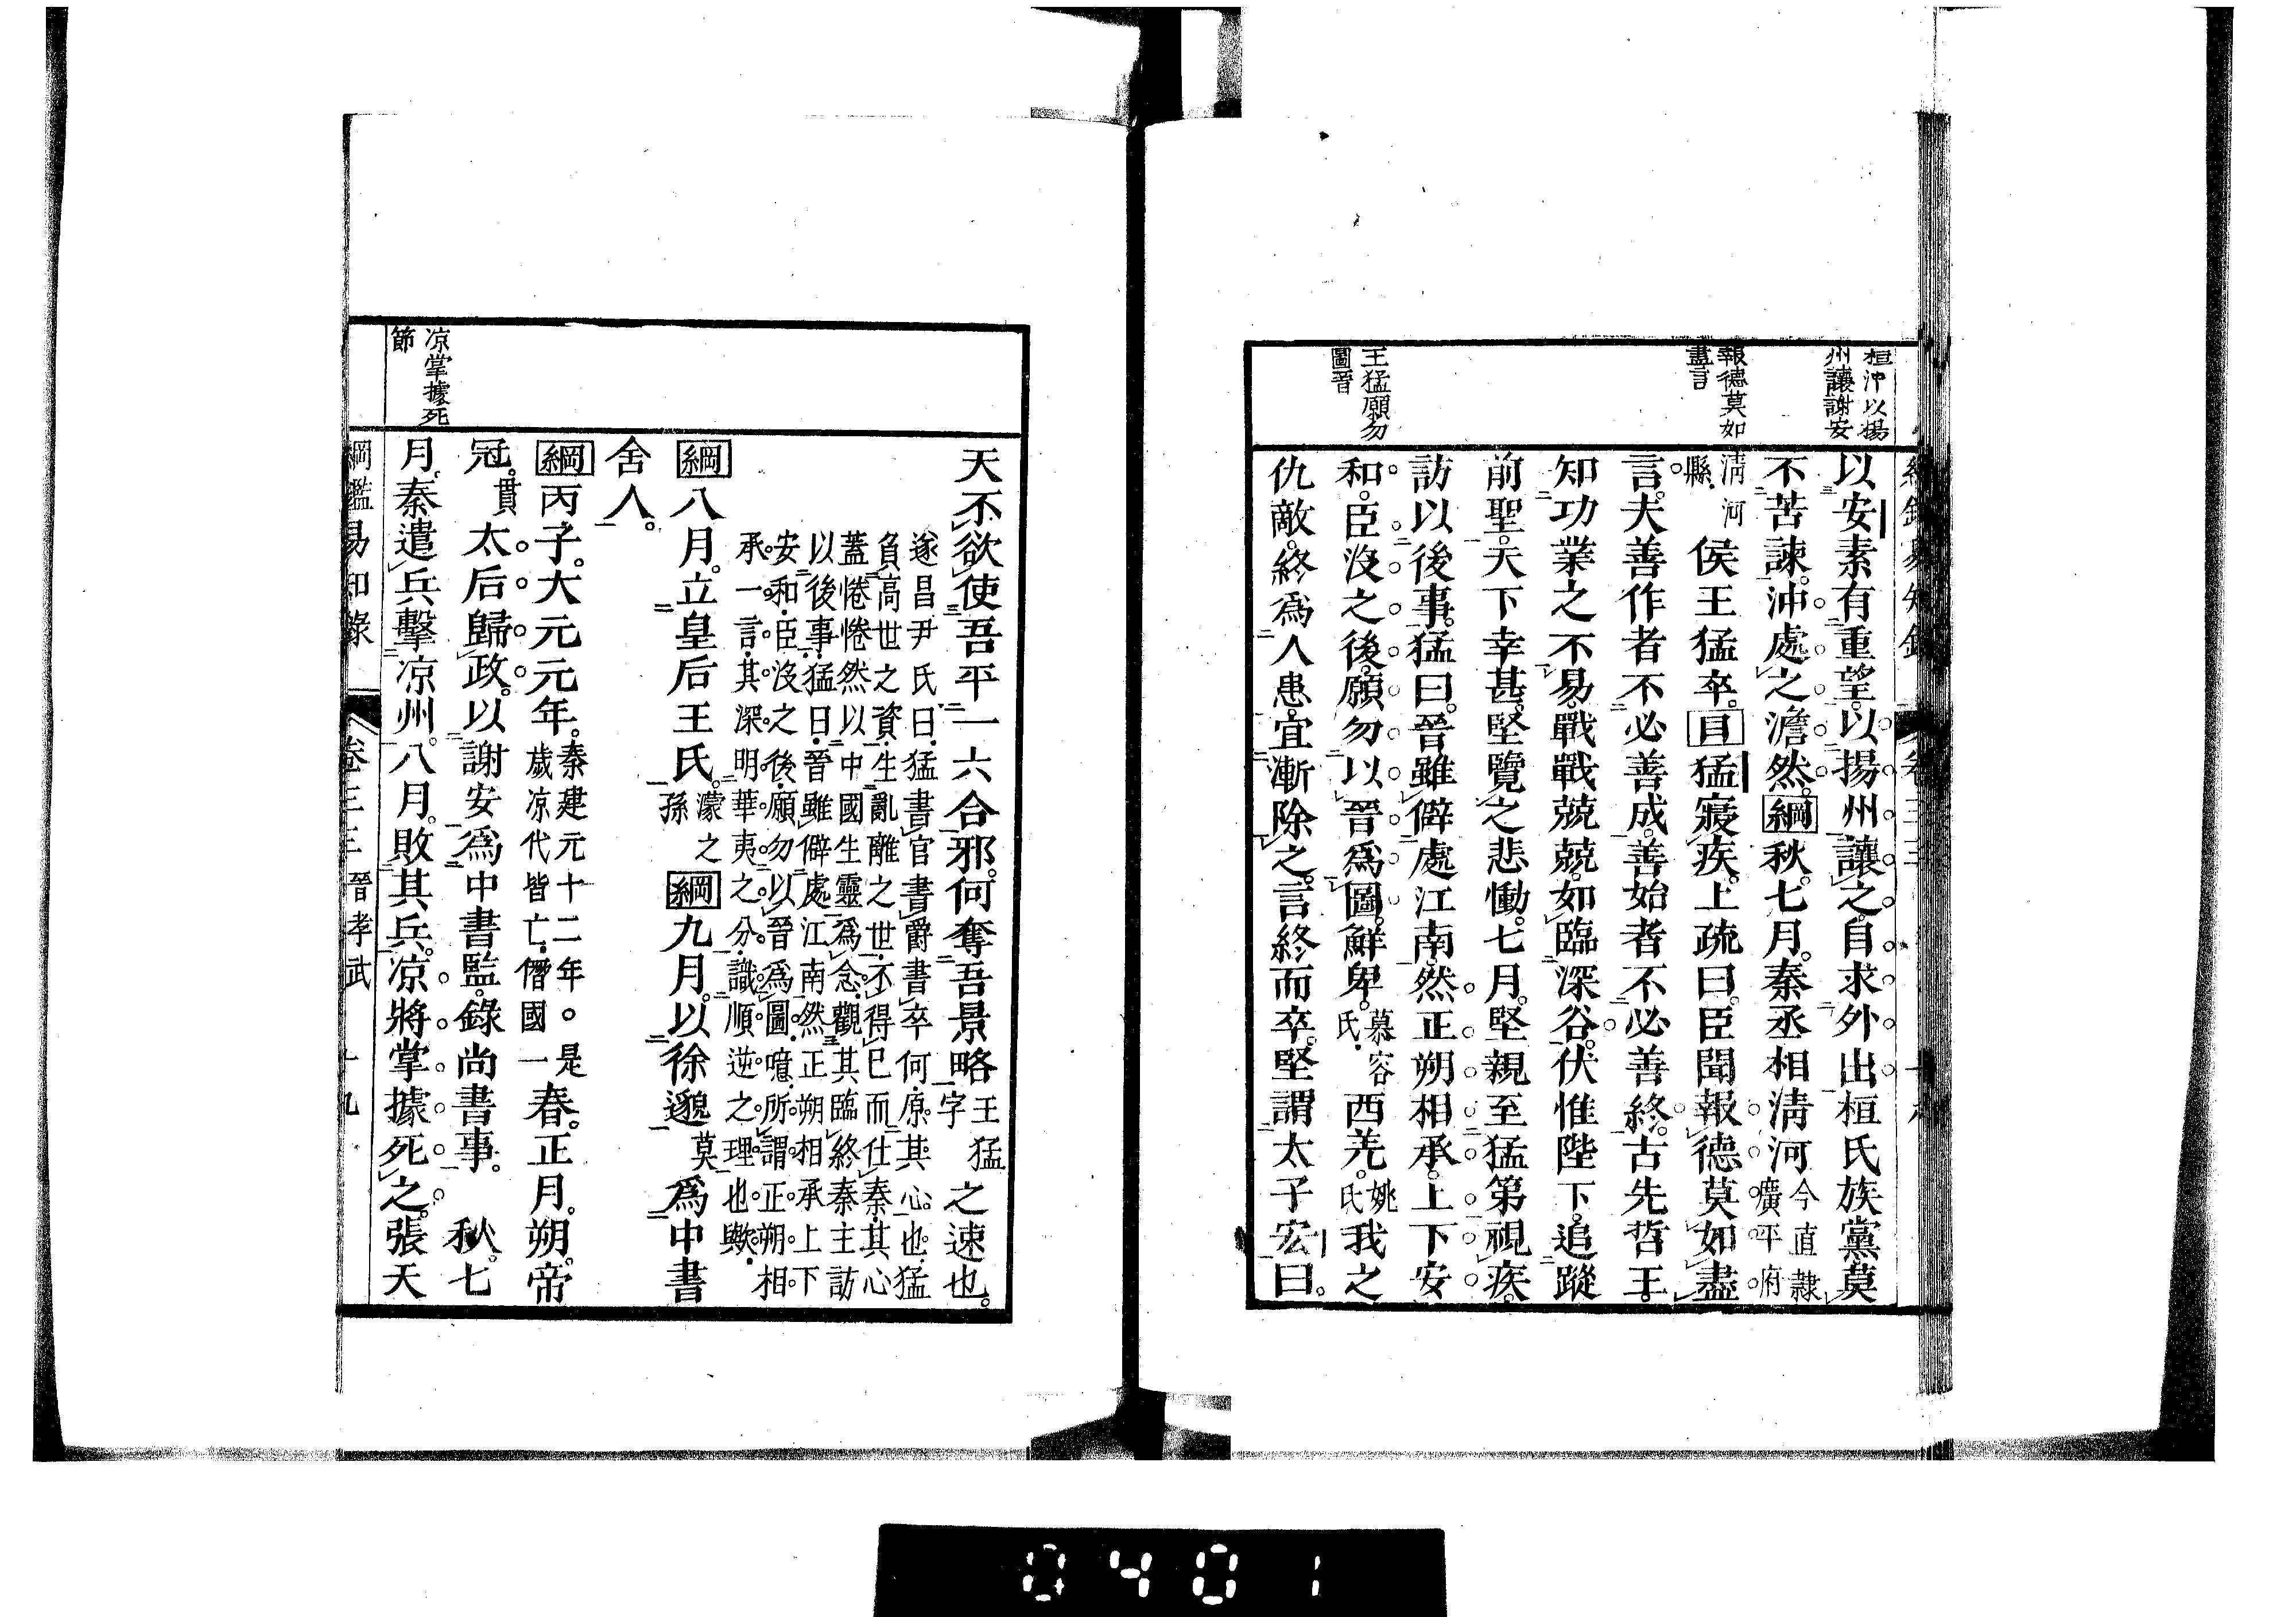 桓沖以揚
州讓謝安
報德莫如
盡言
王猛願勿
圖晉
以安素有重望。以揚州讓之。自求外出。桓氏族黨莫
不苦諫。沖處之澹然。綱秋。七月。秦丞相清河今直隸
廣平府
清河
縣。侯王猛卒。目猛寢疾。上疏曰。臣聞報德莫如盡
言。夫善作者不必善成。善始者不必善終。古先哲王。
知功業之不易。戰戰兢兢。如臨深谷。伏惟陛下。追蹤
前聖。天下幸甚。堅覽之悲慟。七月。堅親至猛第視疾。
訪以後事。猛曰。晉雖僻處江南。然正朔相承。上下安
和。臣沒之後。願勿以晉爲圖。鮮卑。慕容
氏。西羌。姚
氏。我之
仇敵。終爲人患。宜漸除之。言終而卒。堅謂太子宏曰。
天不欲使吾平一六合邪。何奪吾景略王猛
字之速也。
遂昌尹氏曰。猛書官書爵書卒何。原其心也。猛
負高世之資。生亂離之世。不得已而仕秦。其心
蓋惓惓然以中國生靈爲念。觀其臨終秦主訪
以後事。猛曰。晉雖僻處江南。然正朔相承上下
安和。臣沒之後。願勿以晉爲圖。噫。所謂正朔相
承一言。其深明華夷之分。識順逆之理也歟。
綱八月。立皇后王氏。濛之
孫綱九月。以徐邈莫爲中書
舍人。
綱丙子。大元元年。秦建元十二年。是
歲凉代皆亡。僭國一春。正月。朔。帝
冠。貫太后歸政。以謝安爲中書監。錄尚書事。秋。七
月。秦遣兵擊凉州。八月。敗其兵。凉將掌據死之。張天
凉掌據死
節
綱鑑易知錄 卷三三 晉孝武 十九